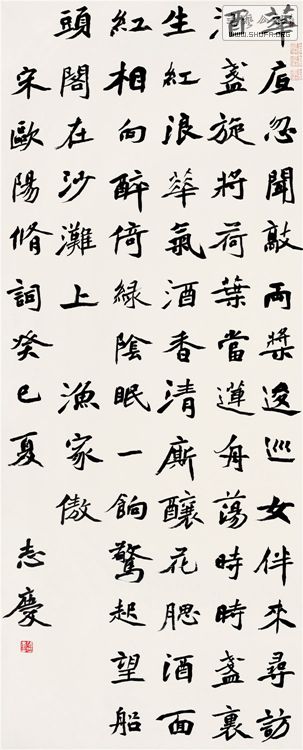 華底忽聞敲兩槳逡巡女伴來尋訪
酒盞旋將荷葉當蓮舟蕩時時盞裏
生紅浪華氣酒香清廝釀花腮酒面
紅相向醉倚綠陰眠一餉驚起望船
頭閣在沙灘上 漁家傲
宋歐陽脩詞癸巳夏 志慶
WWW.SHUFA.ORG